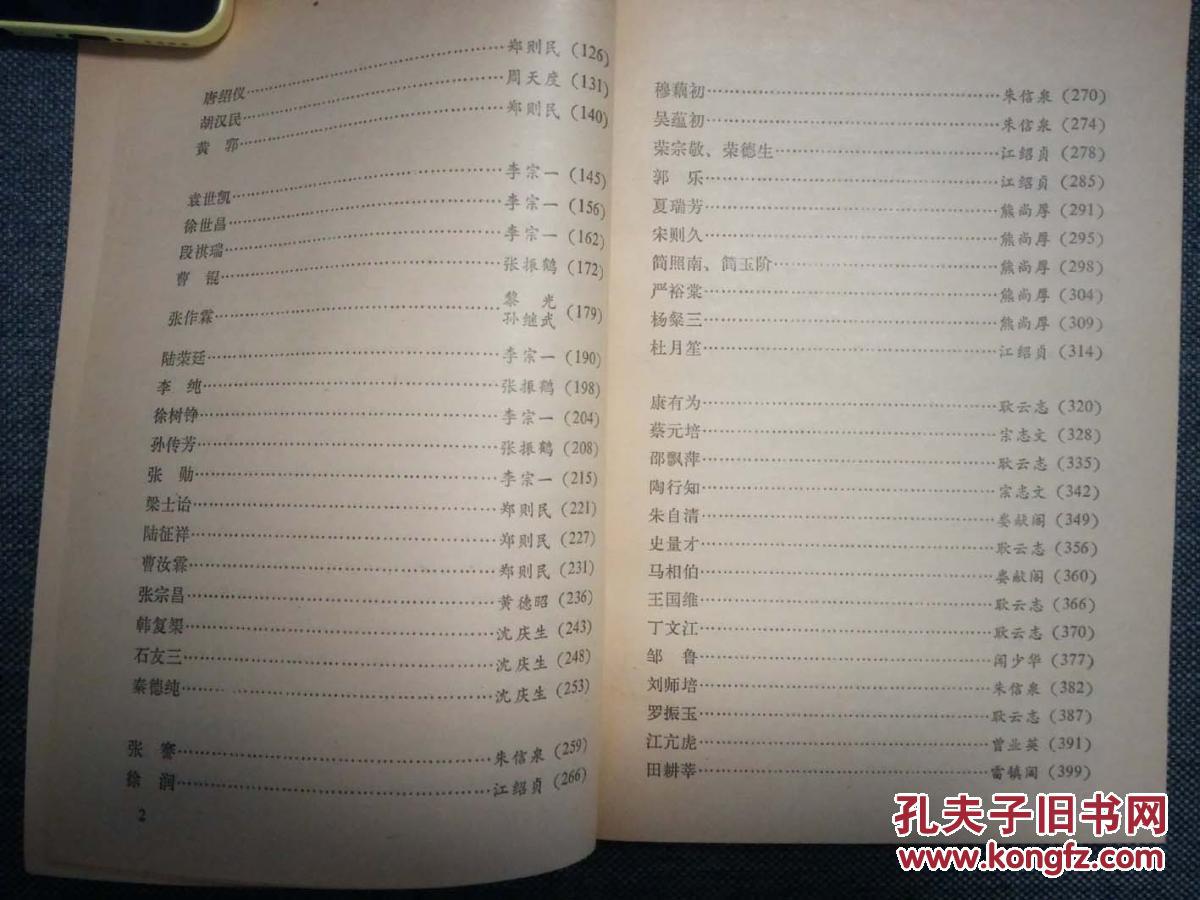 唐绍仪……郑则民(126)
胡汉民……周天度(131)
黄 郛……郑则民(140)
袁世凯……李宗一(145)
徐世昌……李宗一(156)
段祺瑞……李宗一(162)
曹 锟……张振鹤(172)
张作霖……黎 光 孙继武(179)
陆荣廷……李宗一(190)
李 纯……张振鹤(198)
徐树铮……李宗一(204)
孙传芳……张振鹤(208)
张 勋……李宗一(215)
梁士诒……郑则民(221)
陆征祥……郑则民(227)
曹汝霖……郑则民(231)
张宗昌……黄德昭(236)
韩复榘……沈庆生(243)
石友三……沈庆生(248)
秦德纯……沈庆生(253)
张 謇……朱信泉(259)
徐 润……江绍贞(266)
2
穆藕初……朱信泉(270)
吴蕴初……朱信泉(274)
荣宗敬、荣德生……江绍贞(278)
郭 乐……江绍贞(285)
夏瑞芳……熊尚厚(291)
宋则久……熊尚厚(295)
简照南、简玉阶……熊尚厚(298)
严裕棠……熊尚厚(304)
杨粲三……熊尚厚(309)
杜月笙……江绍贞(314)
康有为……耿云志(320)
蔡元培……宗志文(328)
邵飘萍……耿云志(335)
陶行知……宗志文(342)
朱自清……娄献阁(349)
史量才……耿云志(356)
马相伯……娄献阁(360)
王国维……耿云志(366)
丁文江……耿云志(370)
邹 鲁……闻少华(377)
刘师培……朱信泉(382)
罗振玉……耿云志(387)
江亢虎……曾业英(391)
田耕莘……雷镇阁(399)
孔夫子旧书网
www.kongfz.com